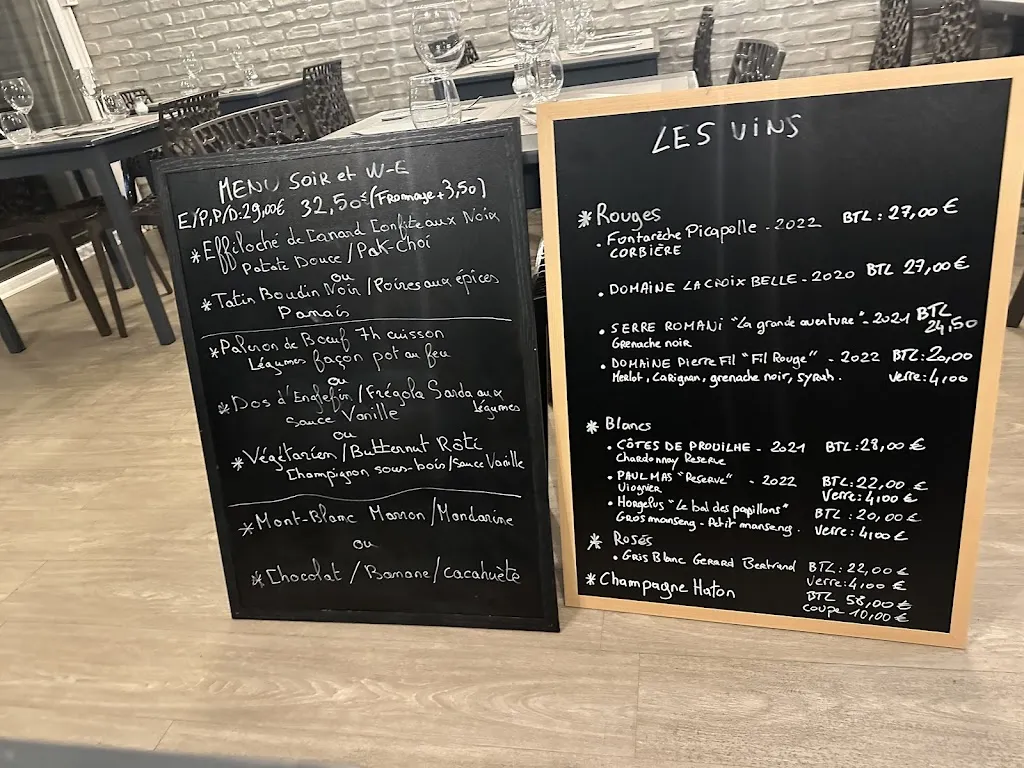 MENU SOIR et W-E
E/P,P/D:29,00€ 32,50€(Fromage+3,50)
*Effiloché de Canard Confite aux Noix
Patate Douce/Pak-Choï
ou
*Tatin Boudin Noir/Poires aux épices
Panais
*Paleron de Bœuf 7h cuisson
Légumes façon pot au feu
ou
*Dos d'Englefin/Frégola Sarda aux
sauce Vanille légumes
ou
*Végétarien/Butternut Rôti
Champignon sous-bois/Sauce Vanille
*Mont-Blanc Marron/Mandarine
ou
*Chocolat/Banane/Cacahuète
LES VINS
*Rouges
• Fontarèche Picapolle - 2022 BTL: 27,00€
CORBIÈRE
• DOMAINE LACROIX BELLE - 2020 BTL 27,00€
• SERRE ROMANI "La grande aventure" - 2021 BTL
Grenache noir 24,50
• DOMAINE Pierre Fil "Fil Rouge" - 2022 BTL: 20,00
Merlot, Carignan, grenache noir, syrah. verre: 4,00
*Blancs
• CÔTES DE PROUILHE - 2021 BTL: 28,00€
Chardonnay Reserve
• PAUL MAS "Reserve" - 2022 BTL: 22,00€
Viognier Verre: 4,00€
• Horgelus "Le bal des papillons" BTL: 20,00€
Gros manseng - Petit manseng. Verre: 4,00€
*Rosés
• Gris Blanc Gerard Bertrand BTL: 22,00€
Verre: 4,00€
*Champagne Haton BTL 58,00€
coupe 10,00€